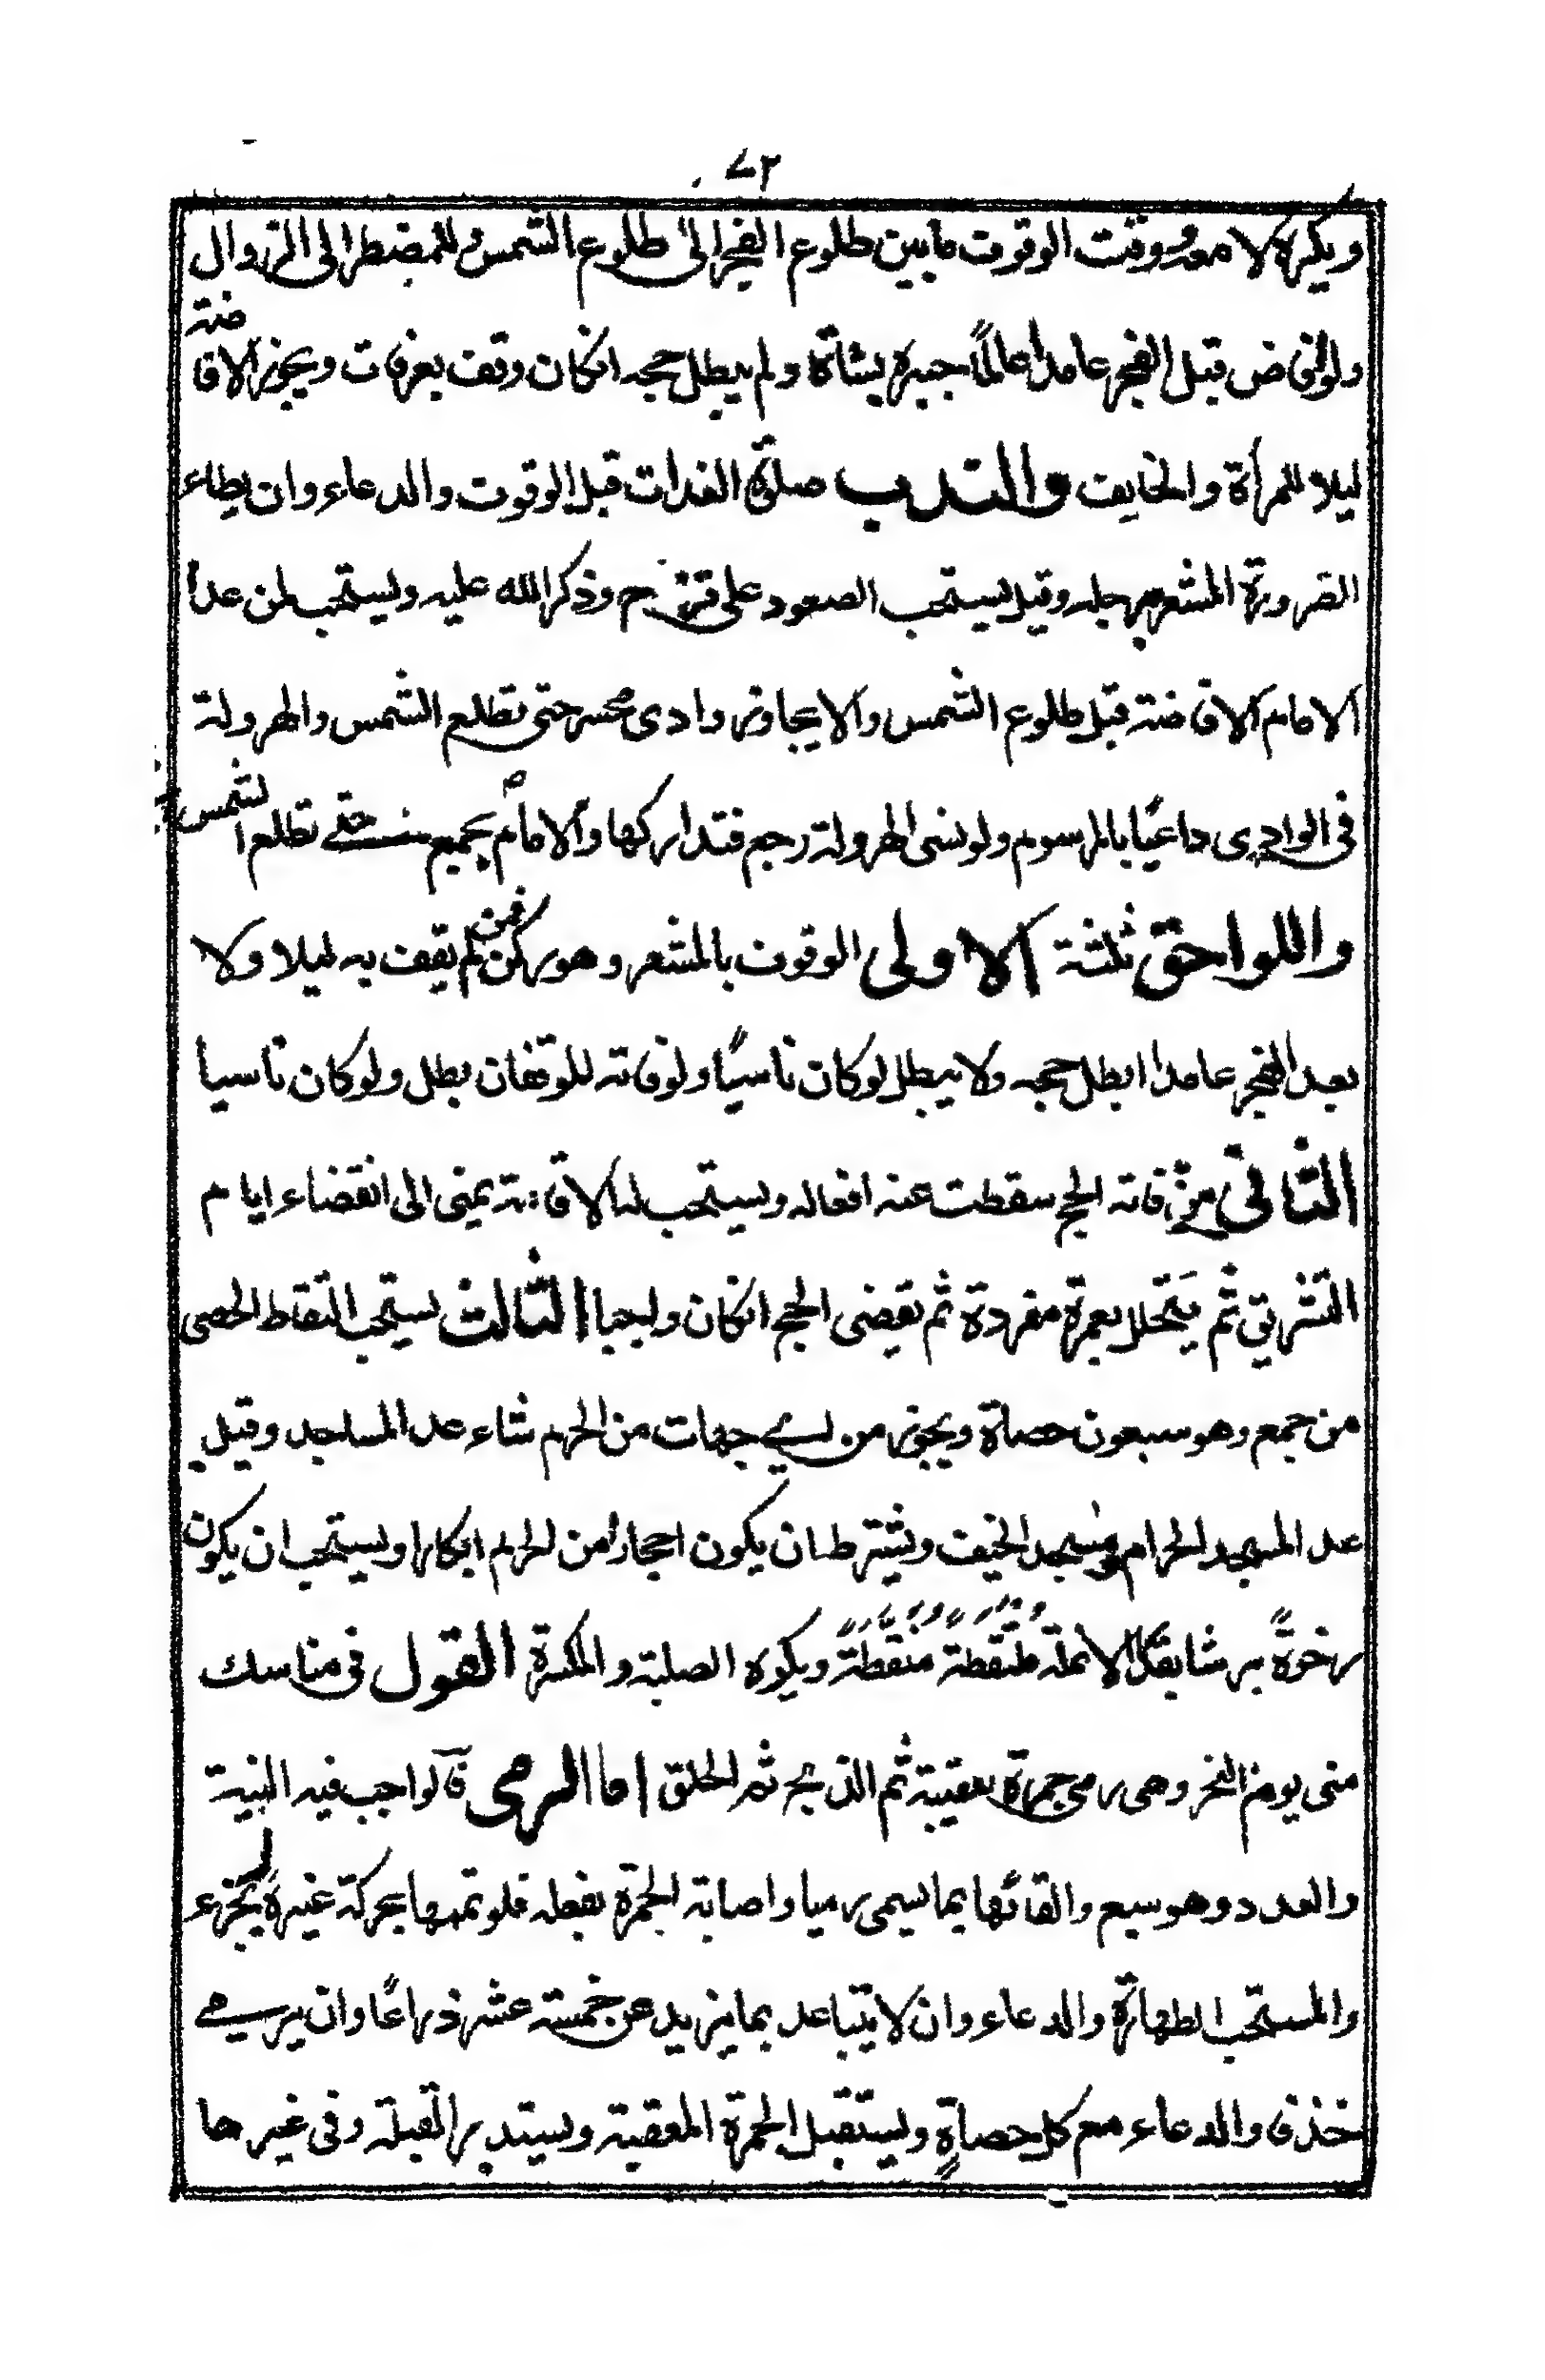 ٧٢
ويكره لا معه ووقت الوقوف ما بين طلوع الفجر الى طلوع الشمس وللمضطر الى الزوال
ولو افاض قبل الفجر عامدا عالمًا جبره بشاة ولم يبطل حجه انكان وقف بعرفات ويجوز الافاضة
ليلا للمرأة والخايف والندب صلوة الغدات قبل الوقوف والدعاء وان يطاء
الضرورة المشعر برجله وقيل يستحب الصعود على قزح وذكر الله عليه ويستحب لمن عدا
الامام الافاضة قبل طلوع الشمس والا يجاوز وادى محسر حتى تطلع الشمس والهرولة
فى الوادى داعيًا بالمرسوم ولو نسى الهرولة رجع فتداركها والامام بجمع حتى تطلع الشمس
واللواحق ثلثة الاولى الوقوف بالمشعر وهو ركن فمن لم يقف به ليلا ولا
بعد الفجر عامدا ابطل حجه ولا يبطل لو كان ناسيًا ولو فاته للوقفان بطل ولو كان ناسيا
الثانى من فاته الحج سقطت عنه افعاله ويستحب له الاقامة بمنى الى انقضاء ايام
التشريق ثم يَتحلل بعمرة مفردة ثم يقضى الحج انكان واجبا الثالث يستحب التقاط الحصى
من جمع وهو سبعون حصاة ويجوز من اى جهات من الحرم شاء عدا المساجد وقيل
عدا المسجد الحرام ومسجد الخيف ويشترط ان يكون احجارا من الحرم ابكارا ويستحب ان يكون
رخوةً برشا بقدر الانملة ملتقطةً منقطةً ويكره الصلبة والمكسرة القول فى مناسك
منى يوم النحر وهى رمى جمرة العقبة ثم الذبح ثم الحلق اما الرمى فالواجب فيه النية
والعدد وهو سبع والقائها بما يسمى رميا واصابة الجمرة بفعله فلو تممها بحركة غيره لم يجزء
والمستحب الطهارة والدعاء وان لا يتباعد بما يزيد عن خمسة عشر ذراعًا وان يرمى
خذفا والدعاء مع كل حصاةٍ ويستقبل الجمرة العقبة ويستدبر القبلة وفى غيرها